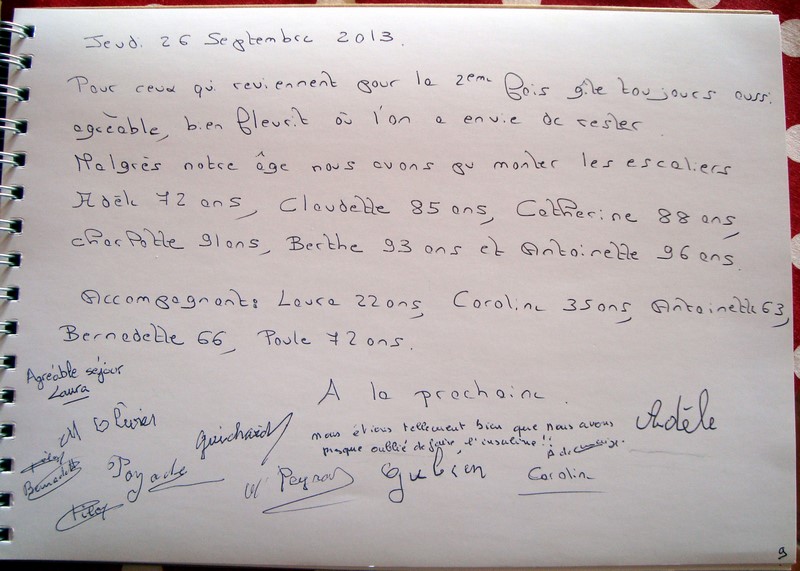 Jeudi 26 Septembre 2013.
Pour ceux qui reviennent pour la 2eme fois gîte toujours aussi
agréable, bien fleurit où l'on a envie de rester.
Malgrès notre âge nous avons pu monter les escaliers
Adèle 72 ans, Claudette 85 ans, Catherine 88 ans,
charlotte 91 ans, Berthe 93 ans et Antoinette 96 ans.
Accompagnants Laura 22 ans, Coraline 35 ans, Antoinette 63,
Bernadette 66, Paule 72 ans.
A la prochaine.
Agréable séjour
Laura
nous étions tellement bien que nous avons
presque oublié de faire l'insuline !!
Adèle
M Olivier
Guichard
Bernadette
Payade
M Peyrard
Coraline
Pitex
9